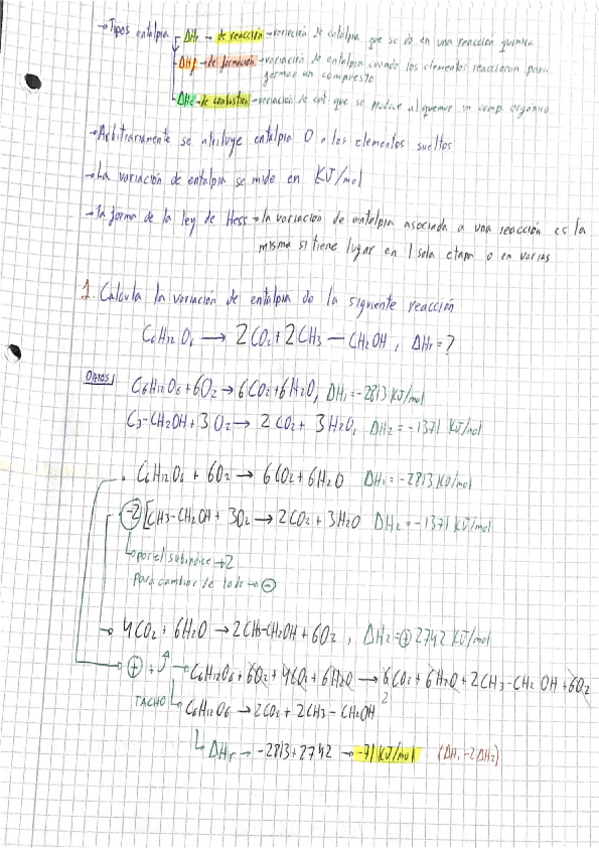 →Tipos entalpia ΔHr → de reacción → variación de entalpia que se da en una reacción química
ΔHf → de formación → variación de entalpia cuando los elementos reaccionan para
formar un compuesto
ΔHc → de combustion → variación de ent que se produce al quemar un comp. orgánico
→Arbitrariamente se atribuye entalpia 0 a los elementos sueltos
→La variación de entalpia se mide en KJ/mol
→La forma de la ley de Hess → la variación de entalpia asociada a una reacción es la
misma si tiene lugar en 1 sola etapa o en varias
1. Calcula la variación de entalpia de la siguiente reacción
C6H12O6 → 2CO2 + 2CH3 — CH2OH, ΔHr = ?
DATOS| C6H12O6 + 6O2 → 6CO2 + 6H2O, ΔH1 = -2813 KJ/mol
C3-CH2OH + 3O2 → 2CO2 + 3H2O, ΔH2 = -1371 KJ/mol
• C6H12O6 + 6O2 → 6CO2 + 6H2O ΔH1 = -2813 KJ/mol
-2 [CH3-CH2OH + 3O2 → 2CO2 + 3H2O ΔH2 = -1371 KJ/mol
por el subíndice → 2
para cambiar de lado → -
4CO2 + 6H2O → 2CH3-CH2OH + 6O2, ΔH2 = + 2742 KJ/mol
+ + ↑ → C6H12O6 + 6O2 + 4CO2 + 6H2O → 6CO2 + 6H2O + 2CH3-CH2OH + 6O2
2
TACHO C6H12O6 → 2CO2 + 2CH3 - CH2OH
ΔHr → -2813 + 2742 → -71 KJ/mol (ΔH1 - 2ΔH2)